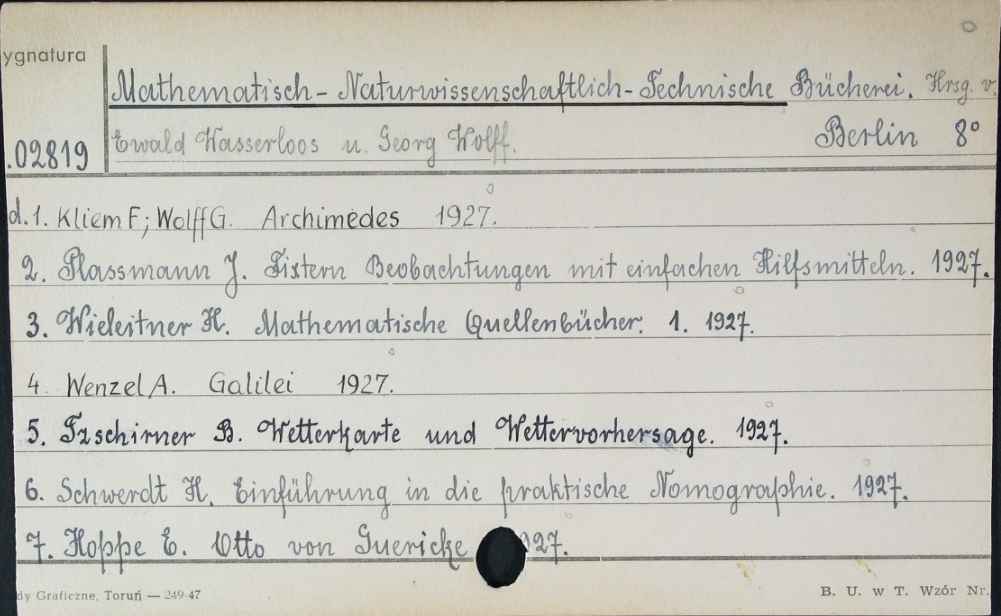 ygnatura
Mathematisch-Naturwissenschaftlich-Technische Bücherei. Hrsg. v.
.02819 Ewald Wasserloos u. Georg Wolff. Berlin 8°
d.1. Kliem F; Wolff G. Archimedes 1927.
2. Plassmann J. Fixtern Beobachtungen mit einfachen Hilfsmitteln. 1927.
3. Wieleitner H. Mathematische Quellenbücher. 1. 1927.
4 Wenzel A. Galilei 1927.
5. Tzschirner B. Wetterkarte und Wettervorhersage. 1927.
6. Schwerdt H. Einführung in die praktische Nomographie. 1927.
7. Hoppe E. Otto von Guericke 1927.
dy Graficzne, Toruń — 249-47 B. U. w T. Wzór Nr.